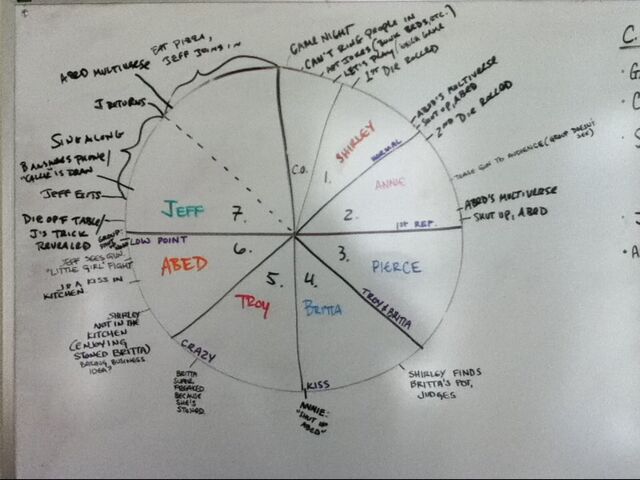 GAME NIGHT
CAN'T RING PEOPLE IN
HOT JOKES (BUNK BEDS, ETC.)
LET'S PLAY / DICE GAME
1ST DIE ROLLED
EAT PIZZA,
JEFF JOINS IN
ABED MULTIVERSE
J RETURNS
SING ALONG
B ANSWERS PHONE/
JEFF EXITS
DIE OFF TABLE/
J'S TRICK
REVEALED
GROUP
JEFF SEES GUN.
"LITTLE GIRL" FIGHT
J & A KISS IN
KITCHEN
SHIRLEY
NOT IN THE
KITCHEN
(ENJOYING
STONED BRITTA)
BAKING BUSINESS
IDEA?
BRITTA
SUPER
FREAKED
BECAUSE
SHE'S
STONED
ANNIE:
"SHUT UP
ABED"
SHIRLEY FINDS
BRITTA'S POT,
JUDGES
ABED'S MULTIVERSE
SHUT UP, ABED
TEASE GUN TO AUDIENCE (GROUP DOESN'T
SEE)
ABED'S MULTIVERSE
SHUT UP, ABED
2ND DIE ROLLED
C.O.
1.
SHIRLEY
NORMAL
2.
ANNIE
1ST REF.
3.
PIERCE
TROY & BRITTA
4.
BRITTA
KISS
5.
TROY
CRAZY
6.
ABED
LOW POINT
7.
JEFF
C.